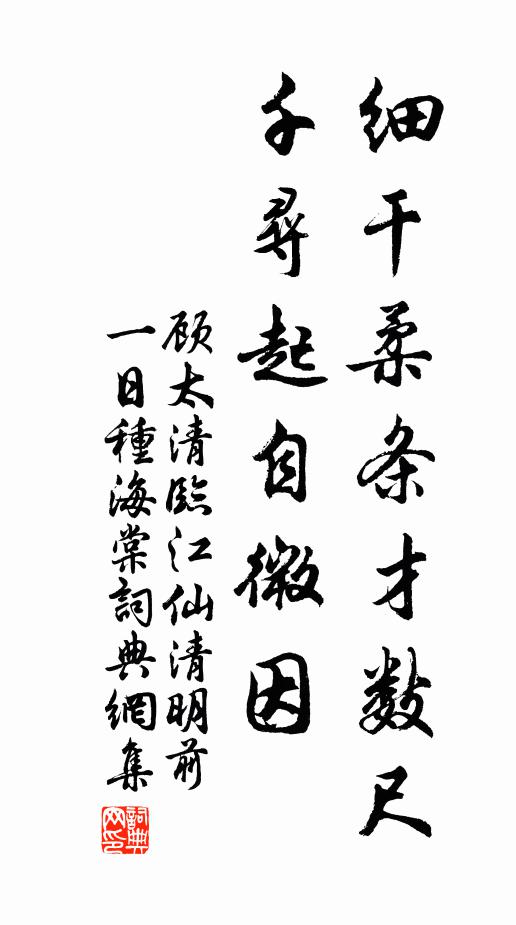 细干柔条才数尺
千寻起自微因
顾太清临江仙清明前
一日種海棠詞典網集
詞典网印